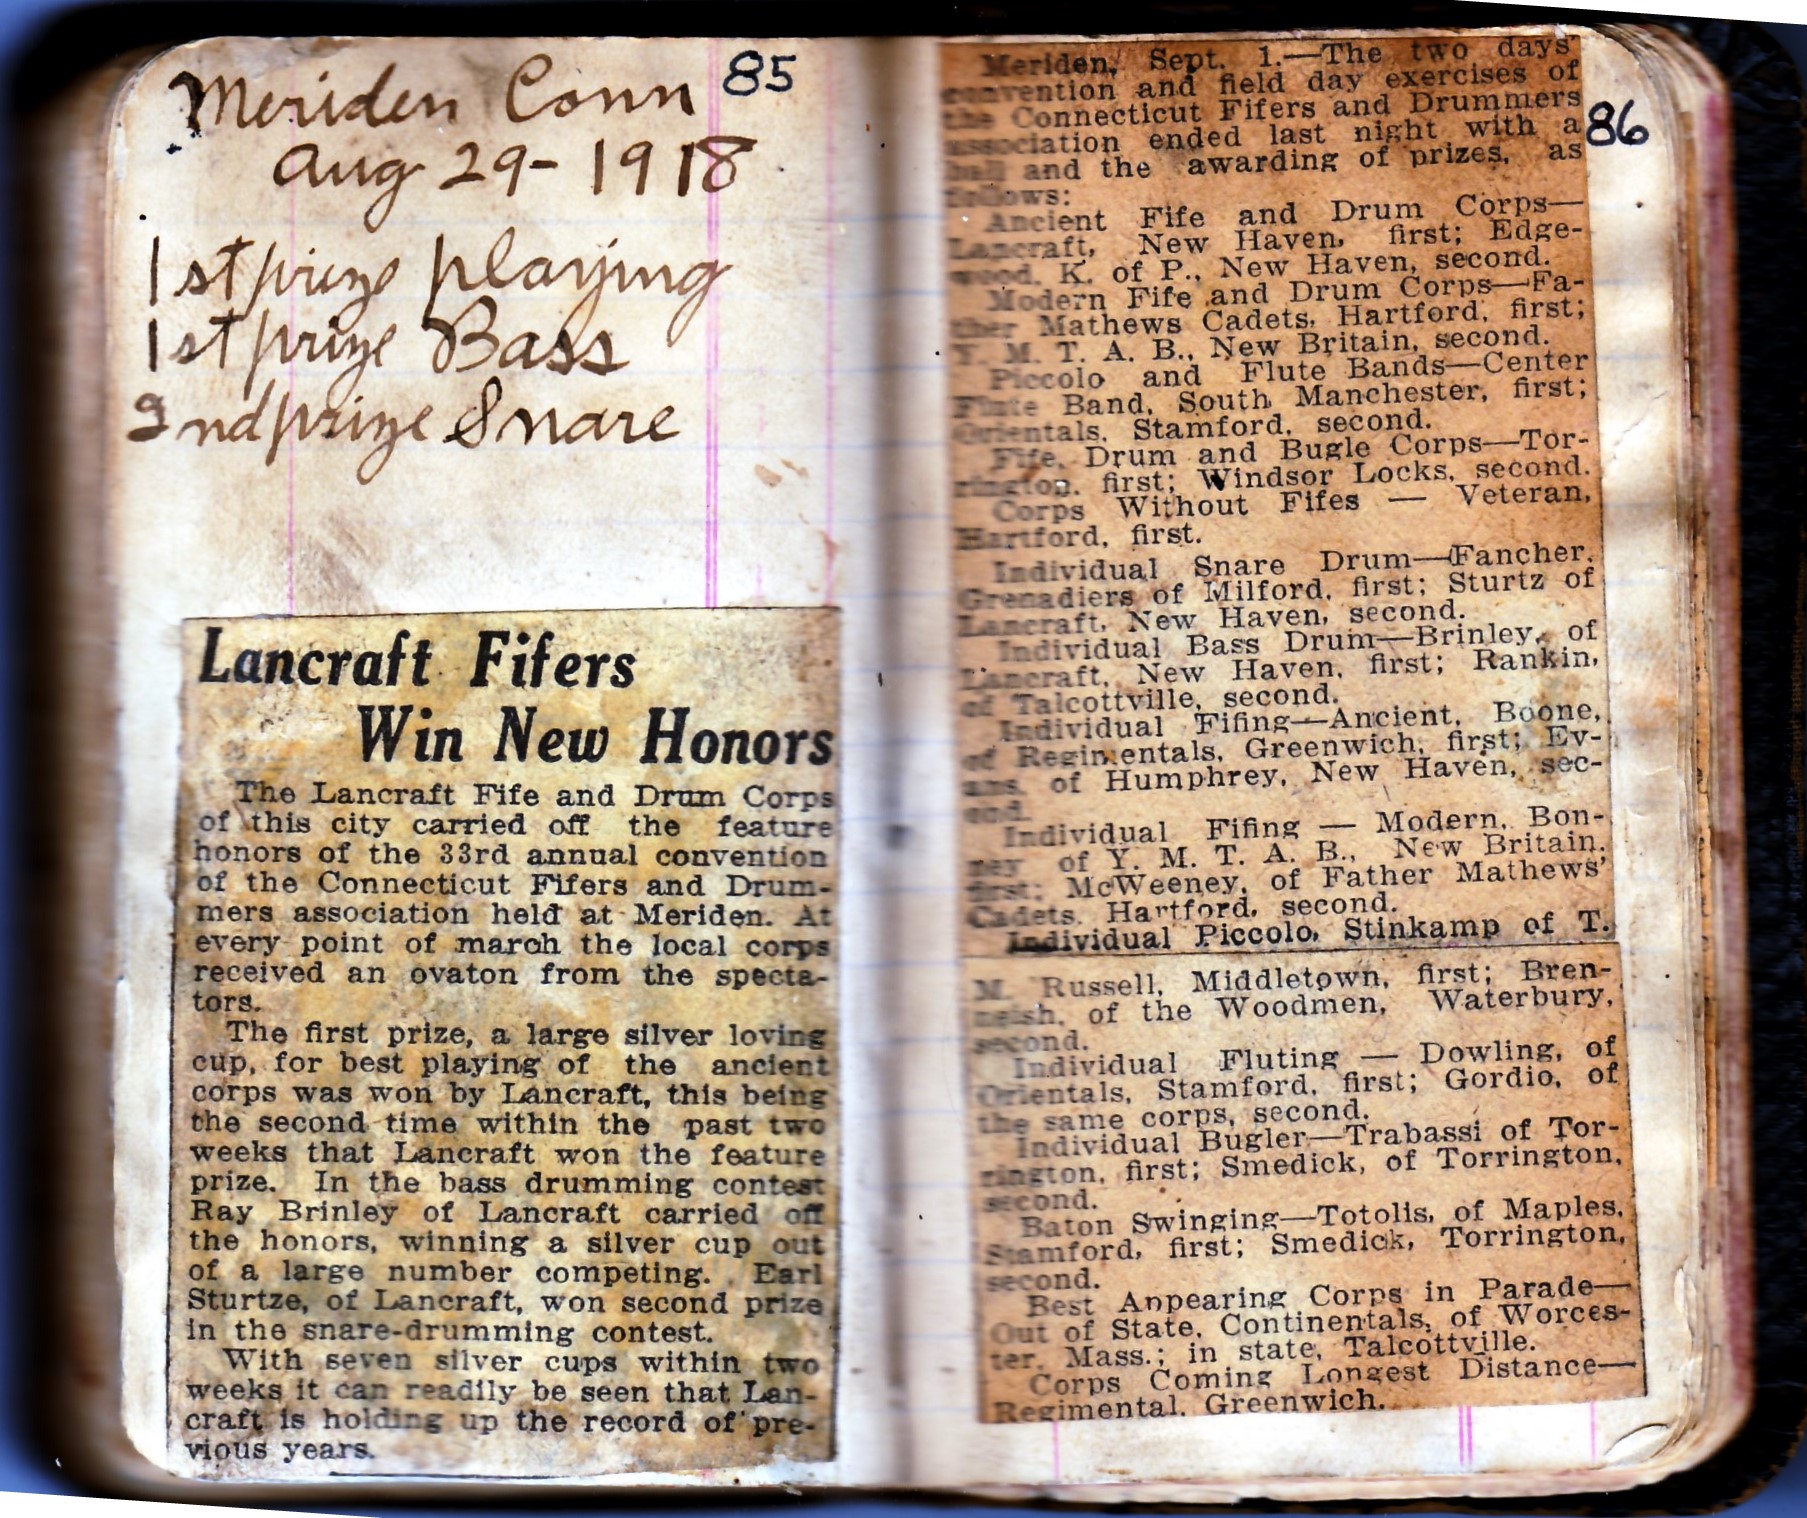 Meriden Conn 85
Aug 29 - 1918
1st prize playing
1st prize Bass
2nd prize Snare
Lancraft Fifers
Win New Honors
The Lancraft Fife and Drum Corps
of this city carried off the feature
honors of the 33rd annual convention
of the Connecticut Fifers and Drum-
mers association held at Meriden. At
every point of march the local corps
received an ovaton from the specta-
tors.
The first prize, a large silver loving
cup, for best playing of the ancient
corps was won by Lancraft, this being
the second time within the past two
weeks that Lancraft won the feature
prize. In the bass drumming contest
Ray Brinley of Lancraft carried off
the honors, winning a silver cup out
of a large number competing. Earl
Sturtze, of Lancraft, won second prize
in the snare-drumming contest.
With seven silver cups within two
weeks it can readily be seen that Lan-
craft is holding up the record of pre-
vious years.
86
Meriden, Sept. 1.—The two days'
convention and field day exercises of
the Connecticut Fifers and Drummers
association ended last night with a
ball and the awarding of prizes, as
follows:
Ancient Fife and Drum Corps—
Lancraft, New Haven, first; Edge-
wood, K. of P., New Haven, second.
Modern Fife and Drum Corps—Fa-
ther Mathews Cadets, Hartford, first;
Y. M. T. A. B., New Britain, second.
Piccolo and Flute Bands—Center
Flute Band, South Manchester, first;
Orientals, Stamford, second.
Fife, Drum and Bugle Corps—Tor-
rington, first; Windsor Locks, second.
Corps Without Fifes — Veteran,
Hartford, first.
Individual Snare Drum—Fancher,
Grenadiers of Milford, first; Sturtz of
Lancraft, New Haven, second.
Individual Bass Drum—Brinley, of
Lancraft, New Haven, first; Rankin,
of Talcottville, second.
Individual Fifing—Ancient, Boone,
of Regimentals, Greenwich, first; Ev-
ans, of Humphrey, New Haven, sec-
ond.
Individual Fifing — Modern, Bon-
ney of Y. M. T. A. B., New Britain,
first; McWeeney, of Father Mathews'
Cadets, Hartford, second.
Individual Piccolo, Stinkamp of T.
M. Russell, Middletown, first; Bren-
neish, of the Woodmen, Waterbury,
second.
Individual Fluting — Dowling, of
Orientals, Stamford, first; Gordio, of
the same corps, second.
Individual Bugler—Trabassi of Tor-
rington, first; Smedick, of Torrington,
second.
Baton Swinging—Totolis, of Maples,
Stamford, first; Smedick, Torrington,
second.
Best Appearing Corps in Parade—
Out of State, Continentals, of Worces-
ter, Mass.; in state, Talcottville.
Corps Coming Longest Distance—
Regimental, Greenwich.